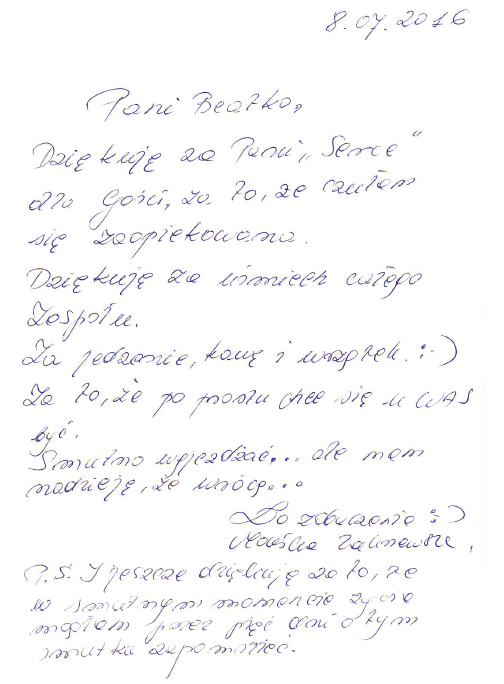 8.07.2016
Pani Beatko,
Dziękuję za Pani „Serce”
dla Gości, za to, że czułam
się zaopiekowana.
Dziękuję za uśmiech całego
Zespołu.
Za jedzenie, kawę i wrzątek. :-)
Za to, że po prostu chce się u WAS
być.
Smutno wyjeżdżać... ale mam
nadzieję, że wrócę...
Do zobaczenia :)
P.S. I jeszcze dziękuję za to, że
w smutnym momencie życia
mogłam przez pięć dni o tym
smutku zapomnieć.